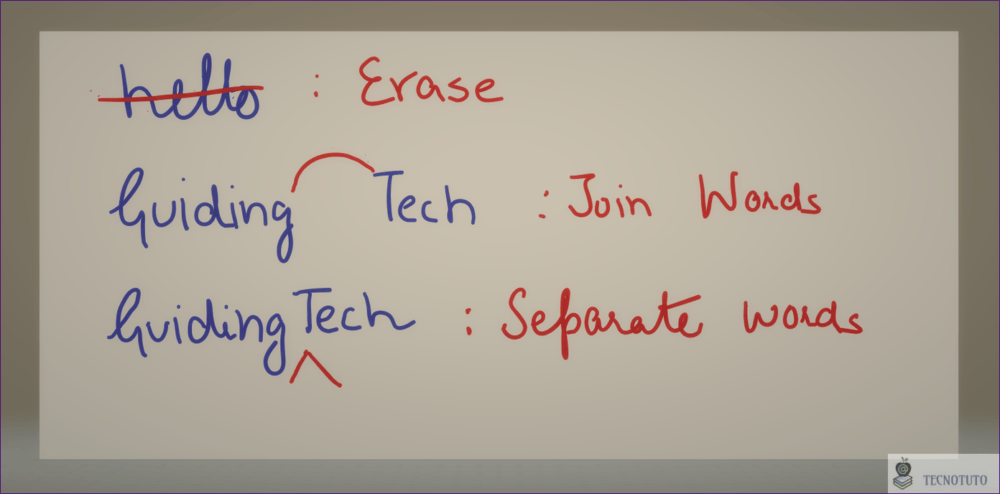 hello : Erase
Guiding Tech : Join Words
GuidingTech : Separate words
TECNOTUTO